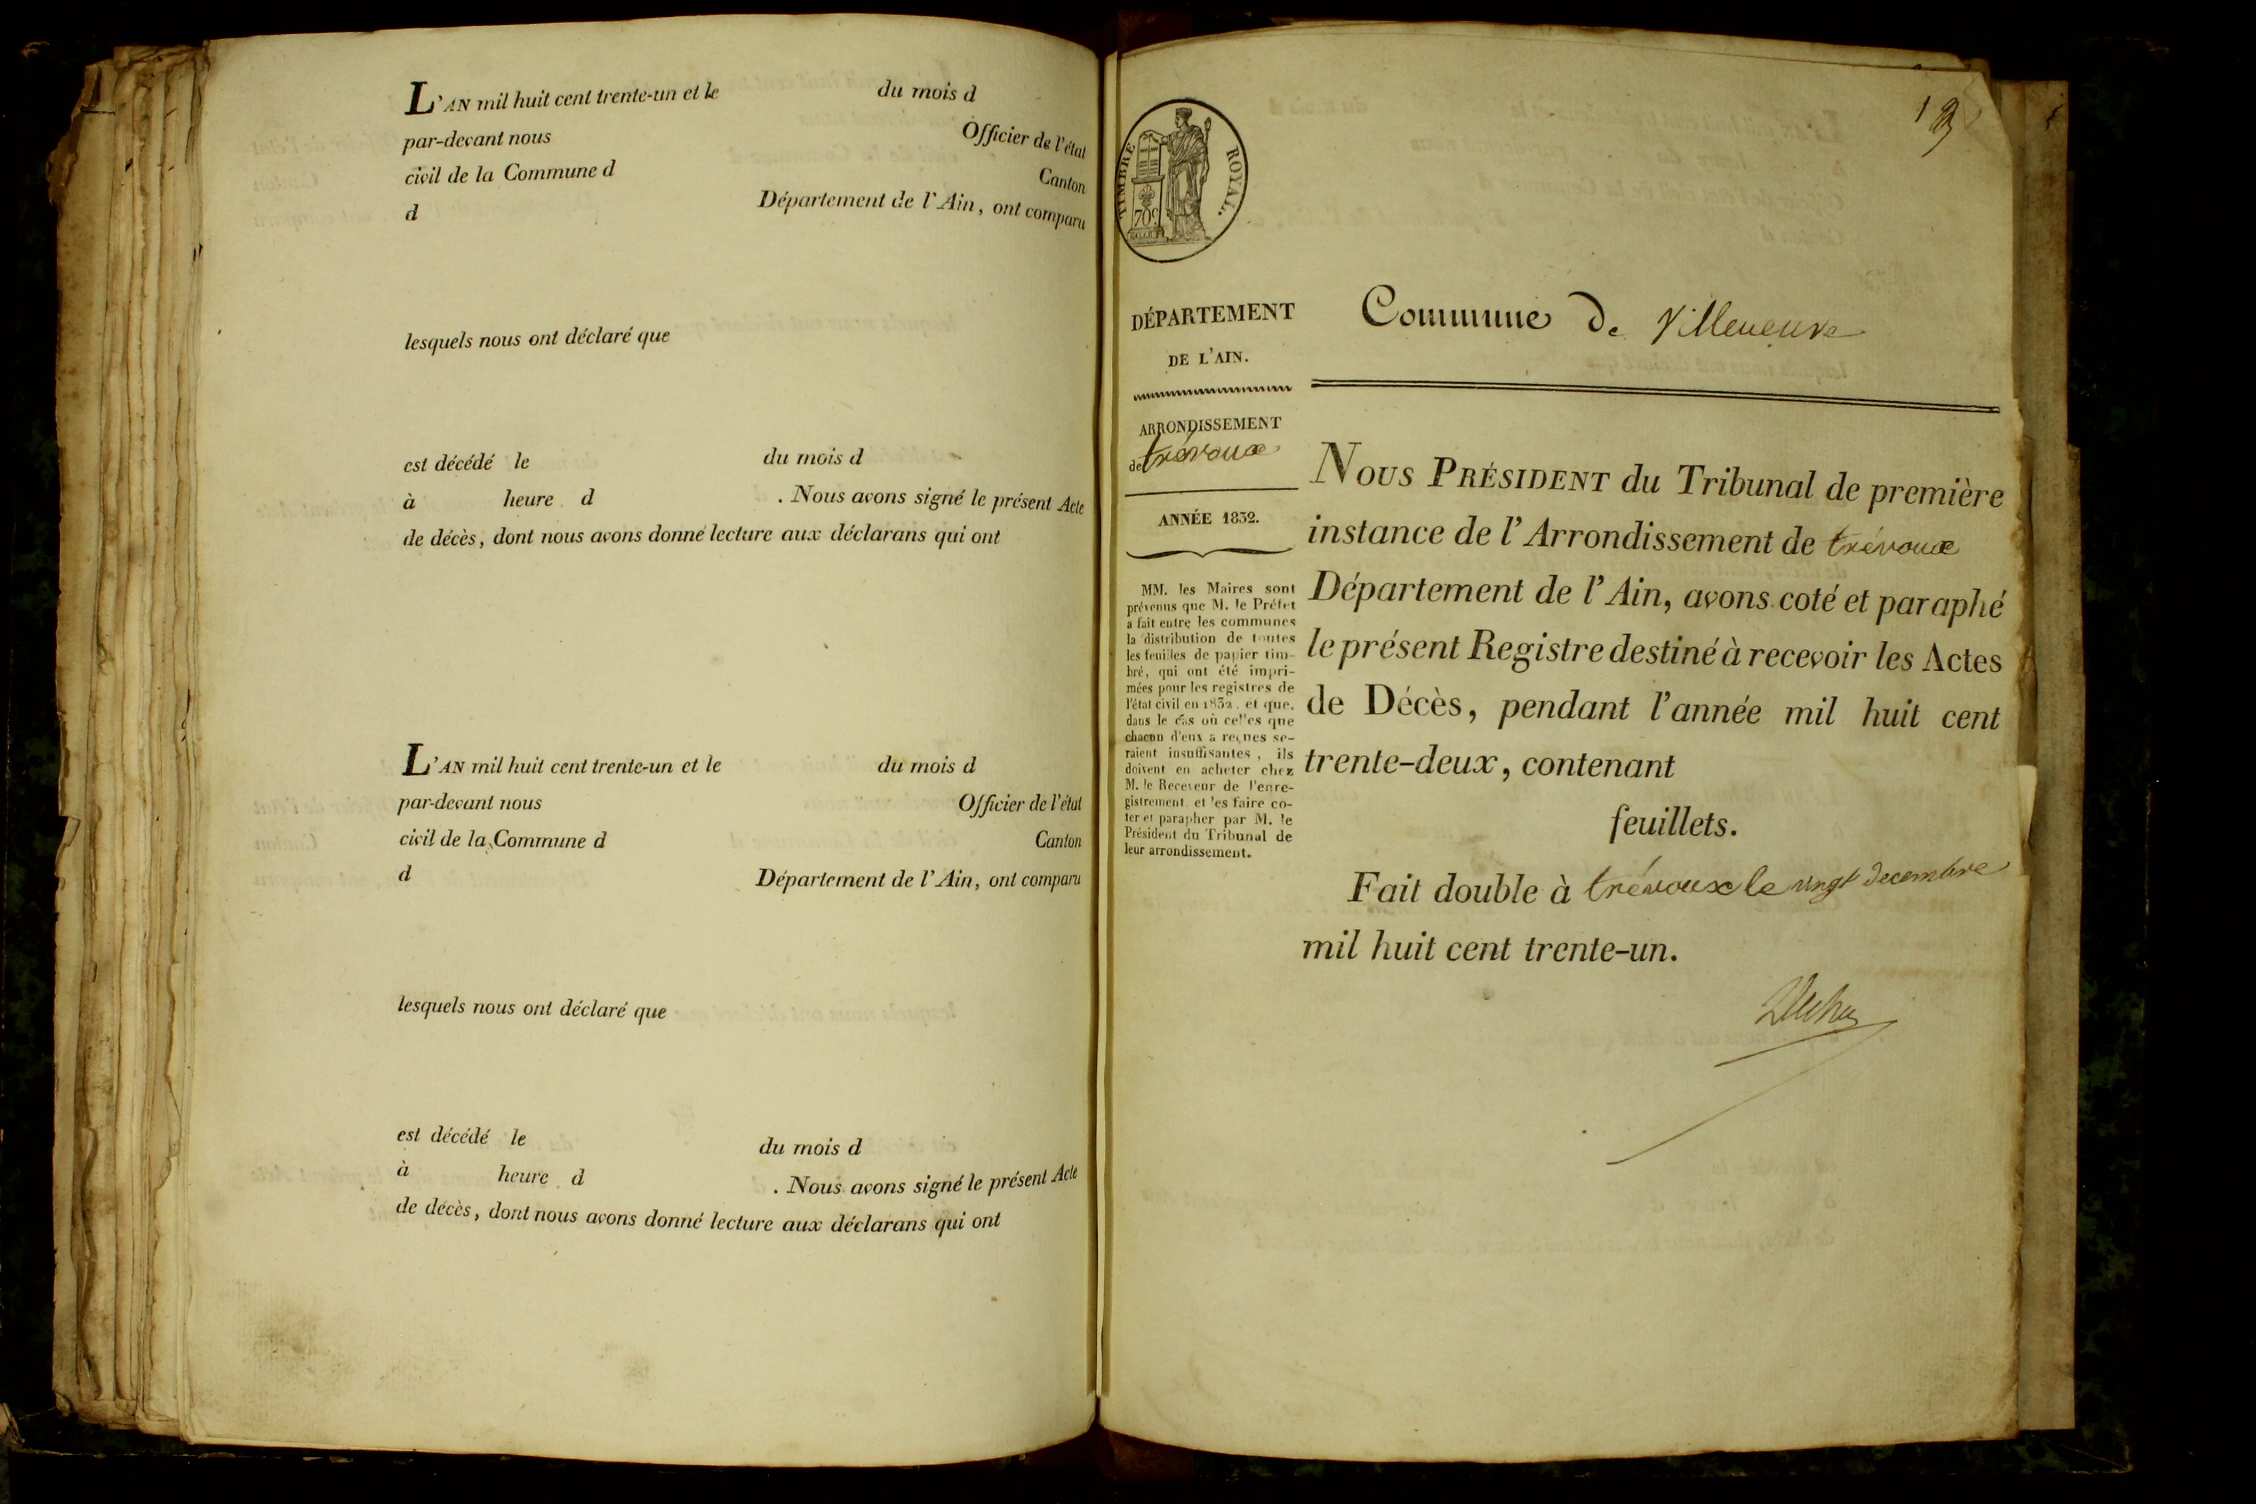 L'AN mil huit cent trente-un et le du mois d
par-devant nous Officier de l'état
civil de la Commune d Canton
d Département de l'Ain, ont comparu
lesquels nous ont déclaré que
est décédé le du mois d
à heure d . Nous avons signé le présent Acte
de décès, dont nous avons donné lecture aux déclarans qui ont
L'AN mil huit cent trente-un et le du mois d
par-devant nous Officier de l'état
civil de la Commune d Canton
d Département de l'Ain, ont comparu
lesquels nous ont déclaré que
est décédé le du mois d
à heure d . Nous avons signé le présent Acte
de décès, dont nous avons donné lecture aux déclarans qui ont
TIMBRE ROYAL.
70c
DÉPARTEMENT
DE L'AIN.
ARRONDISSEMENT
de trévoux
ANNÉE 1832.
MM. les Maires sont
prévenus que M. le Préfet
a fait entre les communes
la distribution de toutes
les feuilles de papier tim-
bré, qui ont été impri-
mées pour les registres de
l'état civil en 1832, et que,
dans le cas où celles que
chacun d'eux a reçues se-
raient insuffisantes, ils
doivent en acheter chez
M. le Receveur de l'enre-
gistrement et les faire co-
ter et parapher par M. le
Président du Tribunal de
leur arrondissement.
Commune de Villeneuve
NOUS PRÉSIDENT du Tribunal de première
instance de l'Arrondissement de trévoux
Département de l'Ain, avons coté et paraphé
le présent Registre destiné à recevoir les Actes
de Décès, pendant l'année mil huit cent
trente-deux, contenant
feuillets.
Fait double à trévoux le vingt decembre
mil huit cent trente-un.